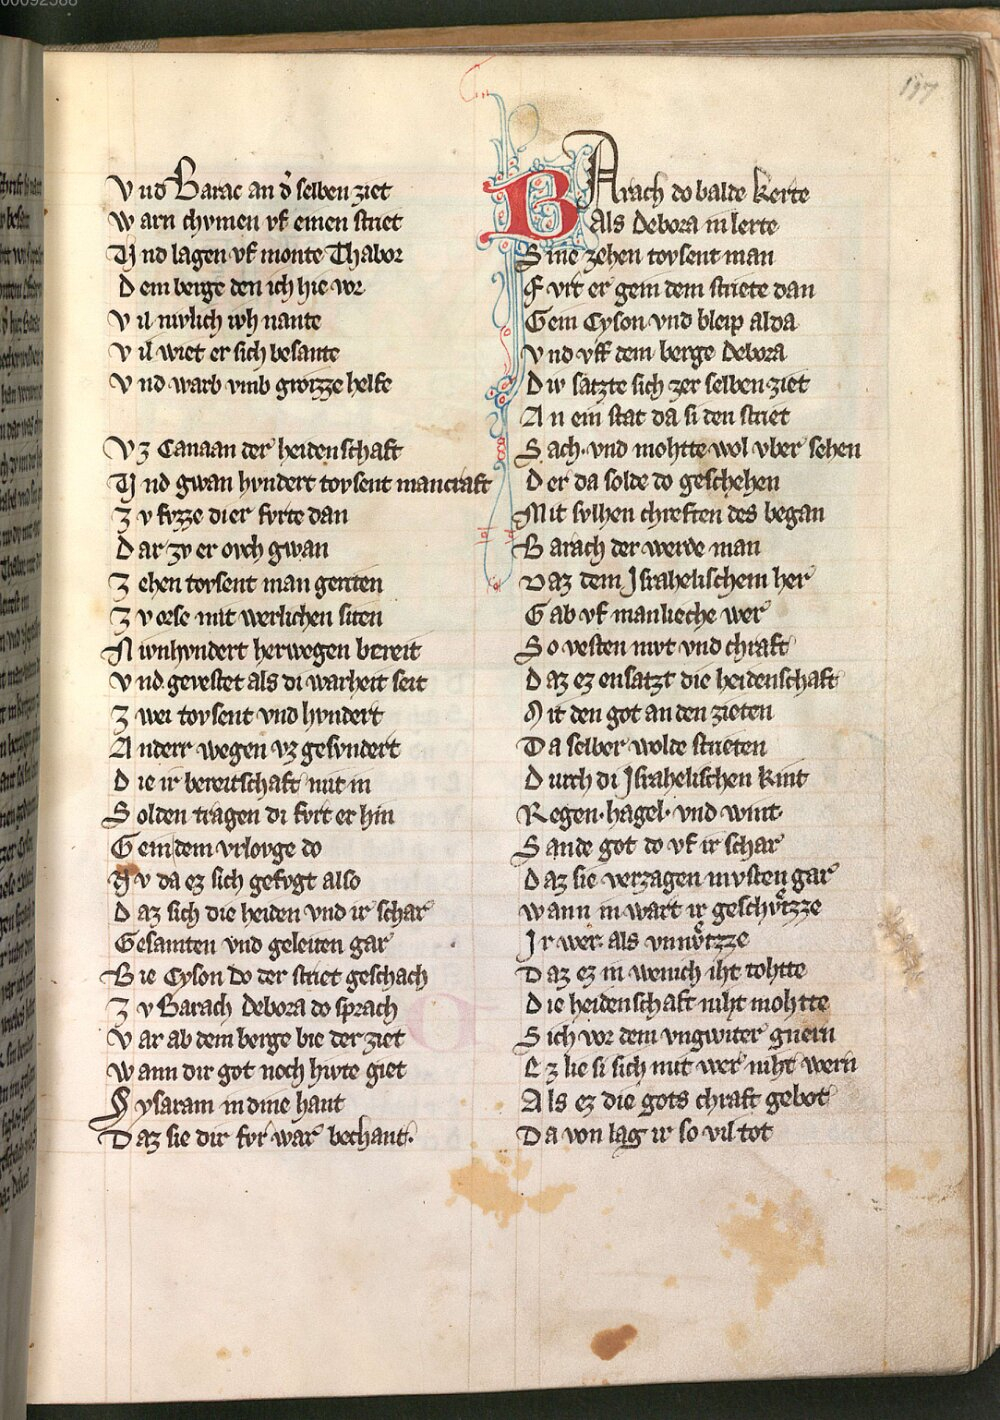 197
Vnd Barac an d̕ selben ziet
Warn chvmen vf einen striet
Vnd lagen vf monte Thabor
Dem berge den ich hie vor
Vil niwlich iwh nante
Vil wiet er sich besante
Vnd warb vmb grozze helfe
Vz Canaan der heidenschaft
Vnd gwan hvndert tovsent mancraft
Zv fvzze di er fvrte dan
Dar zv er ovch gwan
Zehen tovsent man geriten
Zv orse mit werlichen siten
Niwnhvndert herwegen bereit
Vnd gevestet als di warheit seit
Zwei tovsent vnd hvndert
Anderr wegen vz gesvndert
Die ir bereitschaft mit in
Solden tragen di fvrt er hin
Gein dem vrlovge do
Nv da ez sich gefvgt also
Daz sich die heiden vnd ir schar
Gesamten vnd geleiten gar
Bie Cyson do der striet geschach
Zv Barach Debora do sprach
Var ab dem berge bie der ziet
Wann dir got noch hivte giet
Sysaram in dine hant
Daz sie dir fvr war bechant.
BArach do balde kerte
Als Debora in lerte
Sine zehen tovsent man
Fvrt er gein dem striete dan
Gein Cyson vnd bleip alda
Vnd vff dem berge Debora
Div satzte sich zer selben ziet
An ein stat da si den striet
Sach vnd mohtte wol vber sehen
Der da solde do geschehen
Mit svlhen chreften des began
Barach der werde man
Daz dem Jsrahelischem her
Gab vf manlieche wer
So vesten mvt vnd chraft
Daz ez ensatzt die heidenschaft
Mit den got an den zieten
Da selber wolde strieten
Durch di Jsrahelischen kint
Regen· hagel· vnd wint·
Sande got do vf ir schar
Daz sie verzagen mvsten gar
Wann in wart ir geschvͤtzze
Jr wer als vnnvͤtzze
Daz ez in wenich iht tohtte
Die heidenschaft niht mohtte
Sich vor dem vngwiter gnern
Ez lie si sich mit wer niht wern
Als ez die gots chraft gebot
Da von lag ir so vil tot